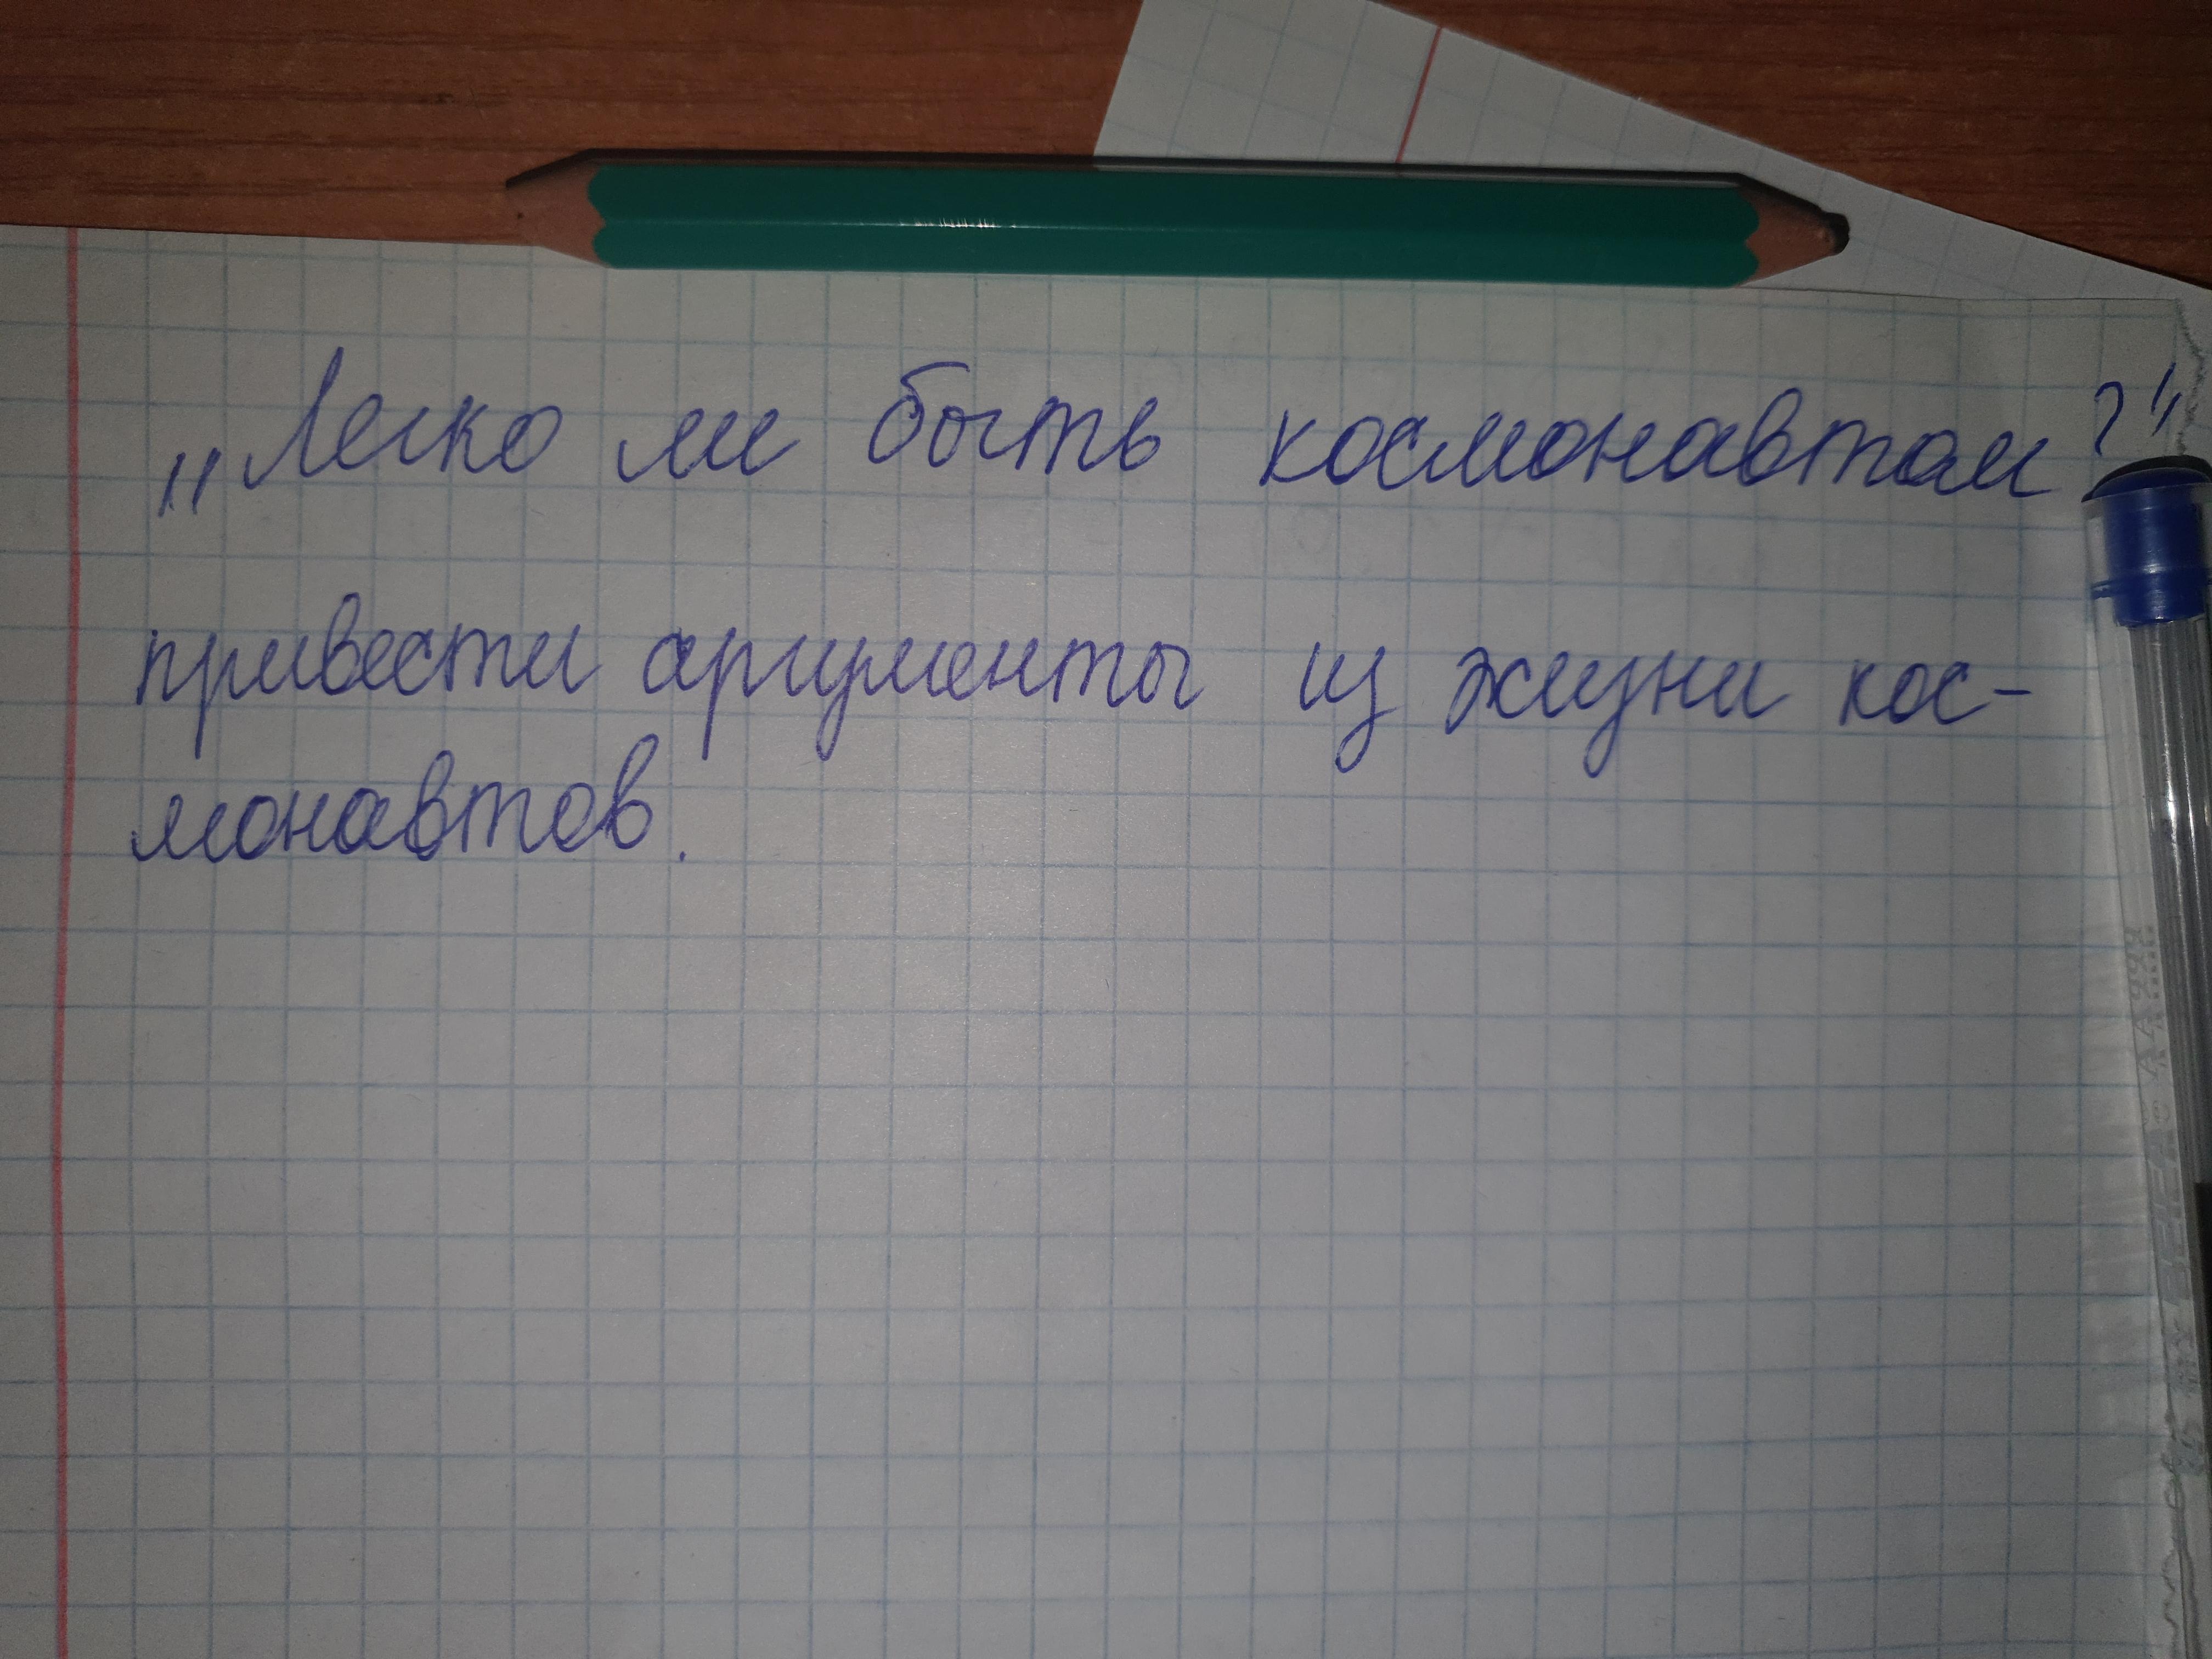 „Легко ли быть космонавтом?"
привести аргументы из жизни кос-
монавтов.